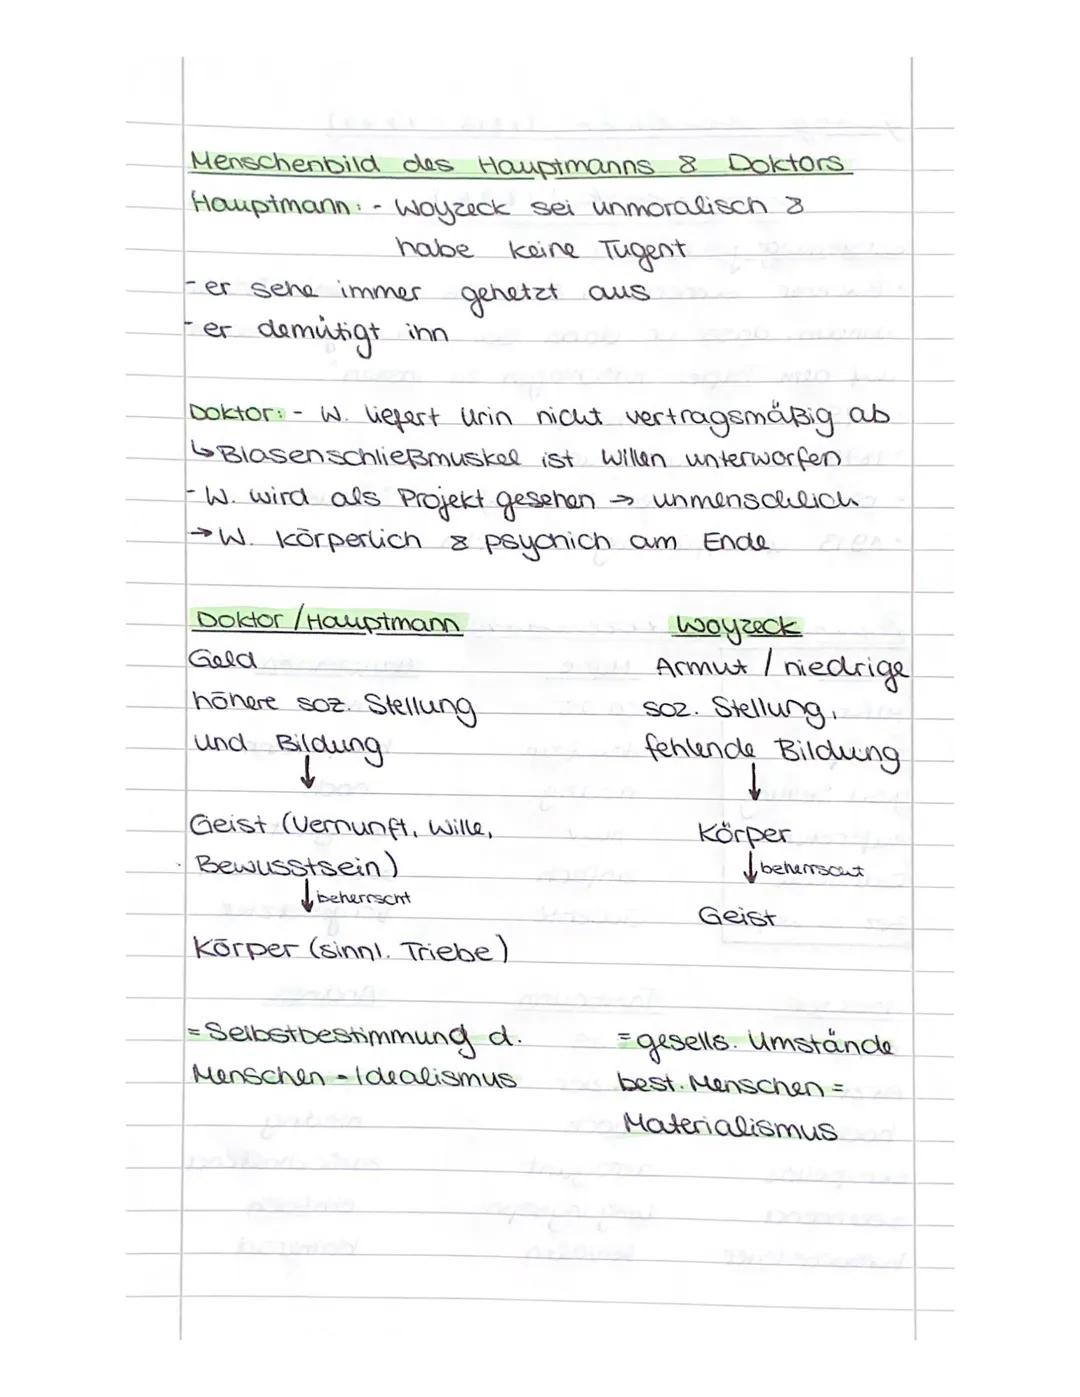 Menschenbild des Hauptmanns & Doktors
Hauptmann: - Woyzeck sei unmoralisch &
habe keine Tugent
- er sehe immer gehetzt aus
- er demütigt ihn
Doktor: - W. liefert Urin nicht vertragsmäßig ab
↳ Blasenschließmuskel ist Willen unterworfen
- W. wird als Projekt gesehen → unmenschlich
→ W. körperlich & psychich am Ende
Doktor / Hauptmann
Geld
höhere soz. Stellung
und Bildung
↓
Geist (Vernunft, Wille,
Bewusstsein)
↓ beherrscht
Körper (sinnl. Triebe)
= Selbstbestimmung d.
Menschen - Idealismus
Woyzeck
Armut / niedrige
soz. Stellung,
fehlende Bildung
↓
Körper
↓ beherrscht
Geist
= gesells. Umstände
best. Menschen =
Materialismus